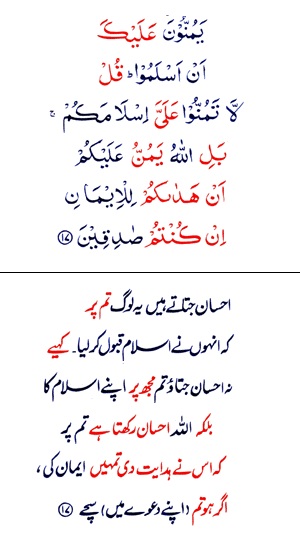 يَمُنُّوْنَ عَلَيْكَ
اَنْ اَسْلَمُوْا ؕ قُلْ
لَّا تَمُنُّوْا عَلَيَّ اِسْلَامَكُمْ ۚ
بَلِ اللّٰهُ يَمُنُّ عَلَيْكُمْ
اَنْ هَدٰىكُمْ لِلْاِيْمَانِ
اِنْ كُنْتُمْ صٰدِقِيْنَ ۝۱۷
احسان جتاتے ہیں یہ لوگ تم پر
کہ انہوں نے اسلام قبول کر لیا۔ کہیے
نہ احسان جتاؤ تم مجھ پر اپنے اسلام کا
بلکہ اللہ احسان رکھتا ہے تم پر
کہ اس نے ہدایت دی تمہیں ایمان کی،
اگر ہو تم (اپنے دعوے میں) سچے ۝۱۷